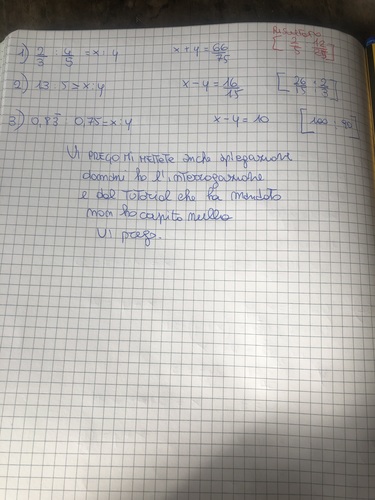 Risultato
1) 2/3 : 4/5 = x : y    x + y = 66/75    [2/5 ; 12/25]
2) 13 : 5 = x : y    x - y = 16/15    [26/15 ; 2/3]
3) 0,83 : 0,75 = x : y    x - y = 10    [100 ; 90]
Vi prego mi mettete anche spiegazione
domani ho l'interrogazione
e dal tutorial che ha mandato
non ho capito nulla
Vi prego.